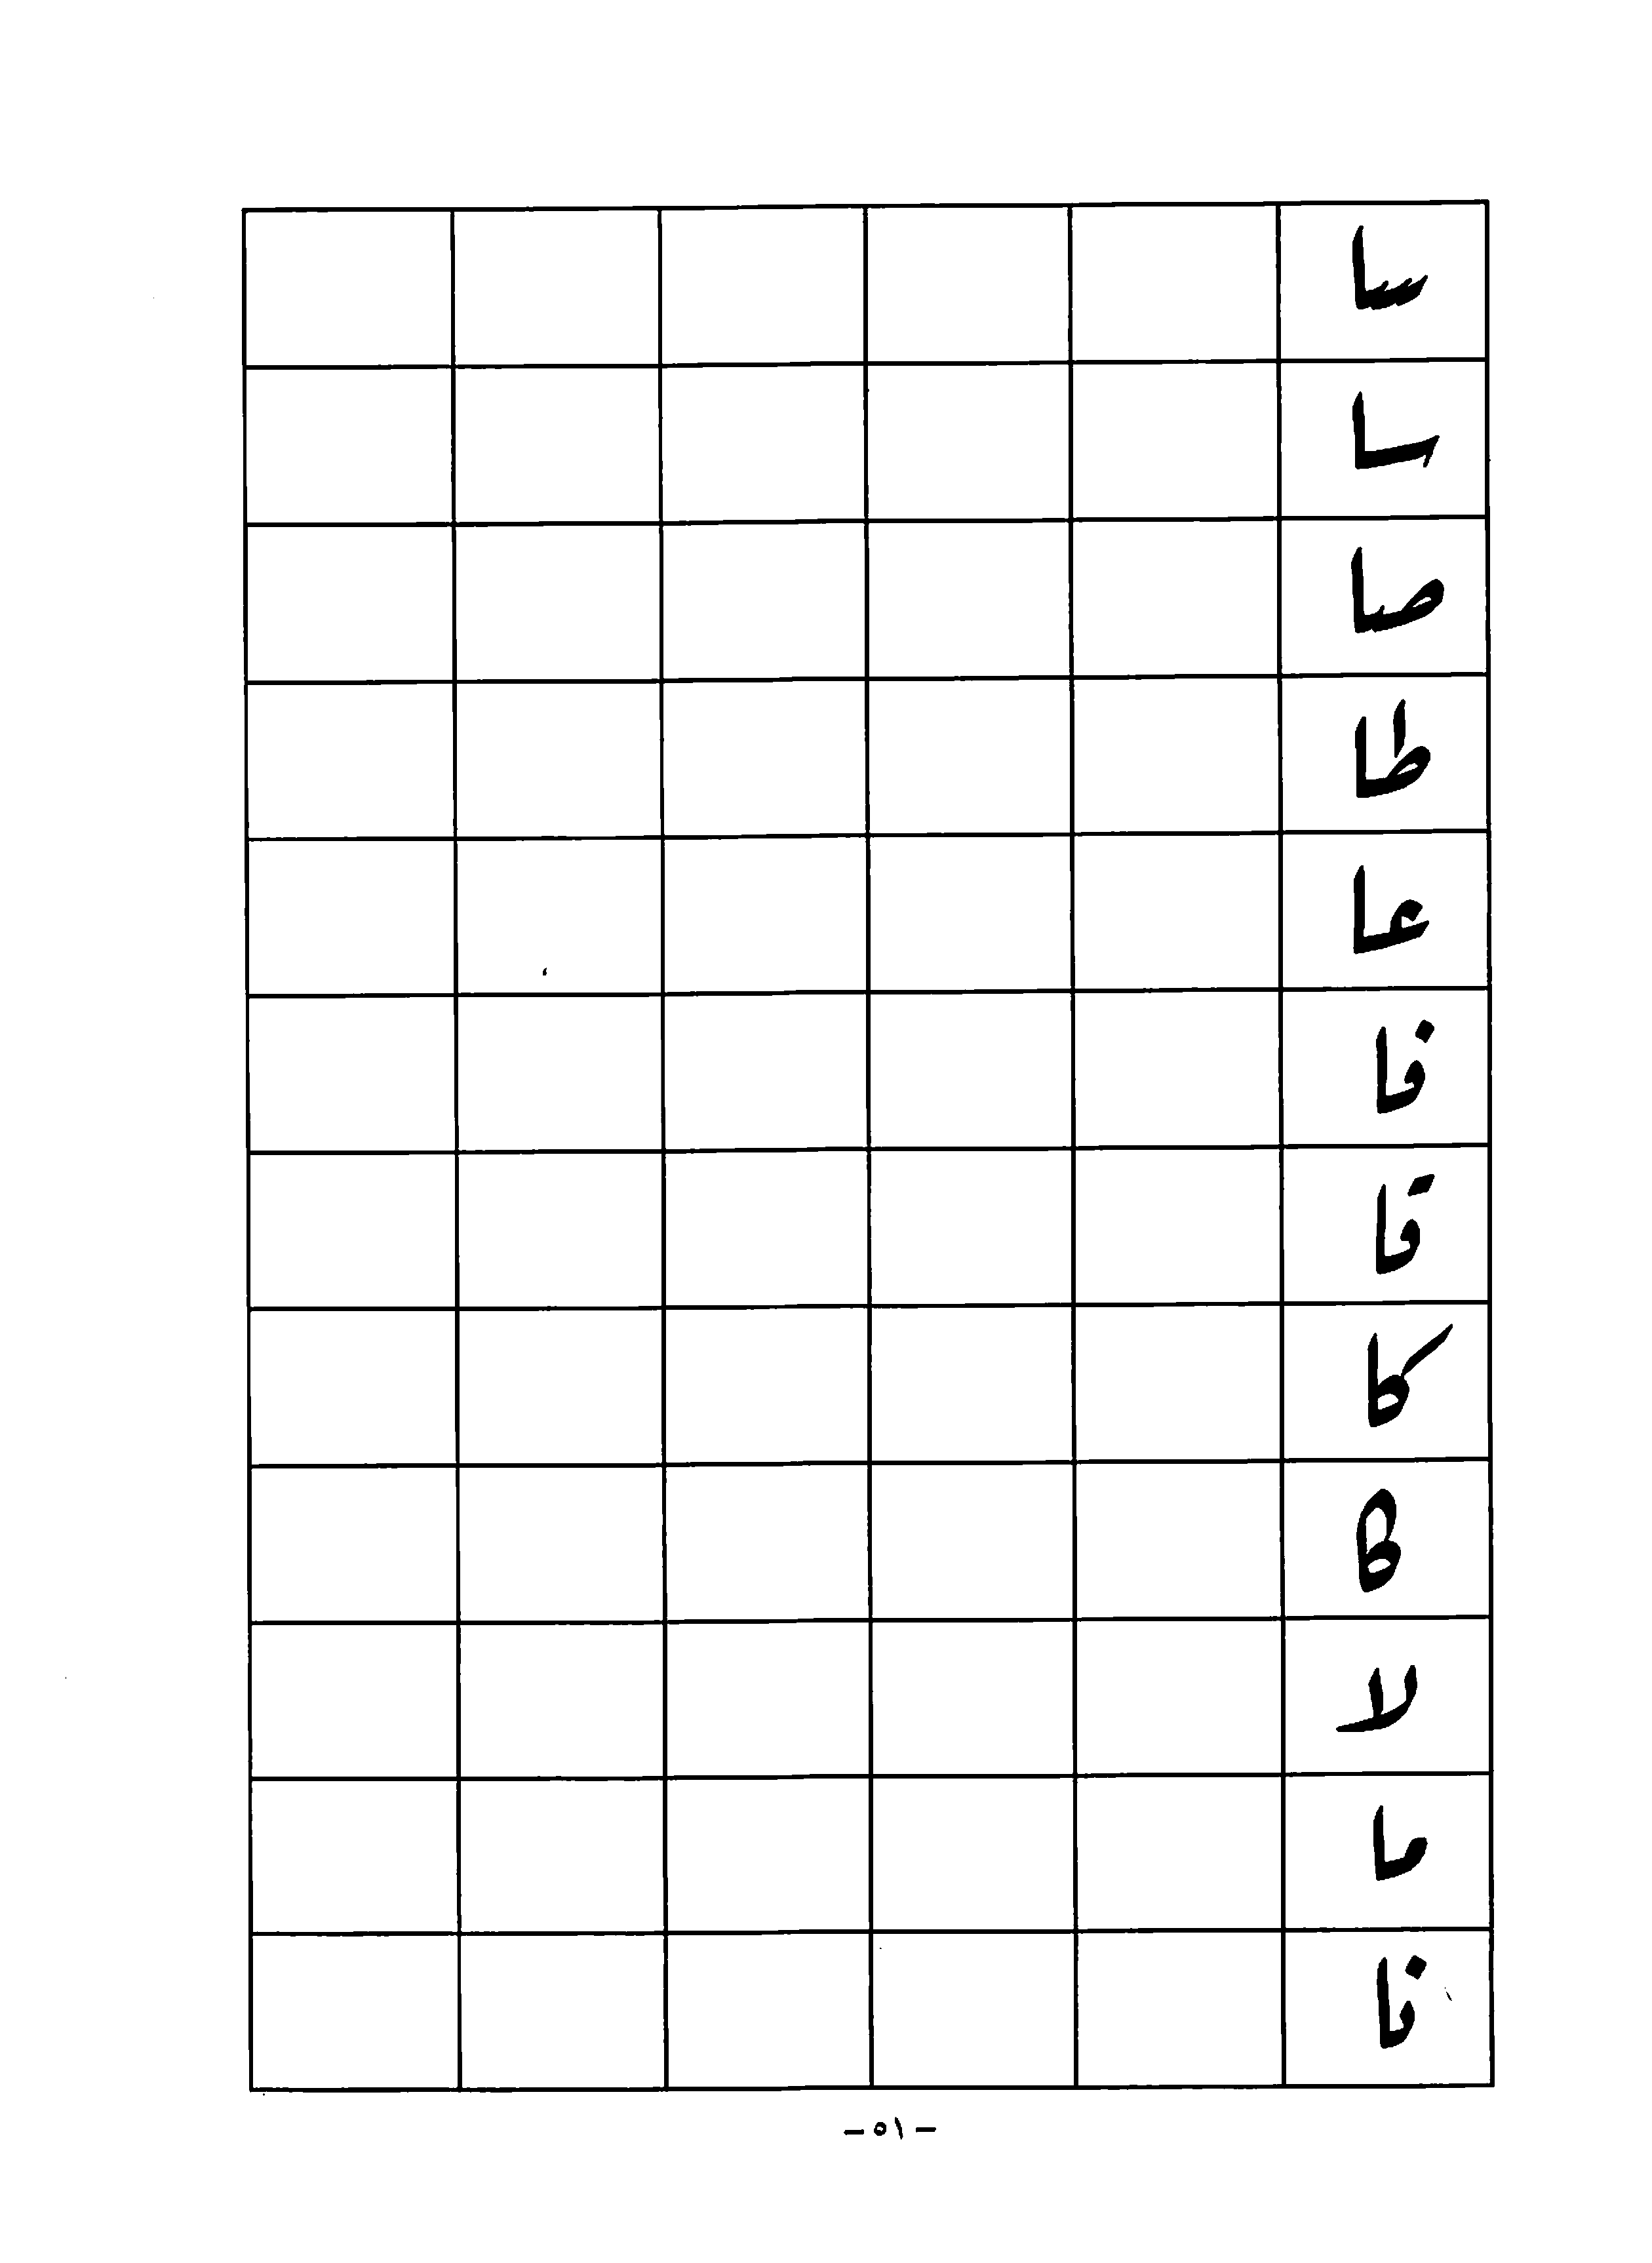 سا
سا
صا
طا
عا
فا
قا
كا
كا
لا
ما
نا
- ٥١ -